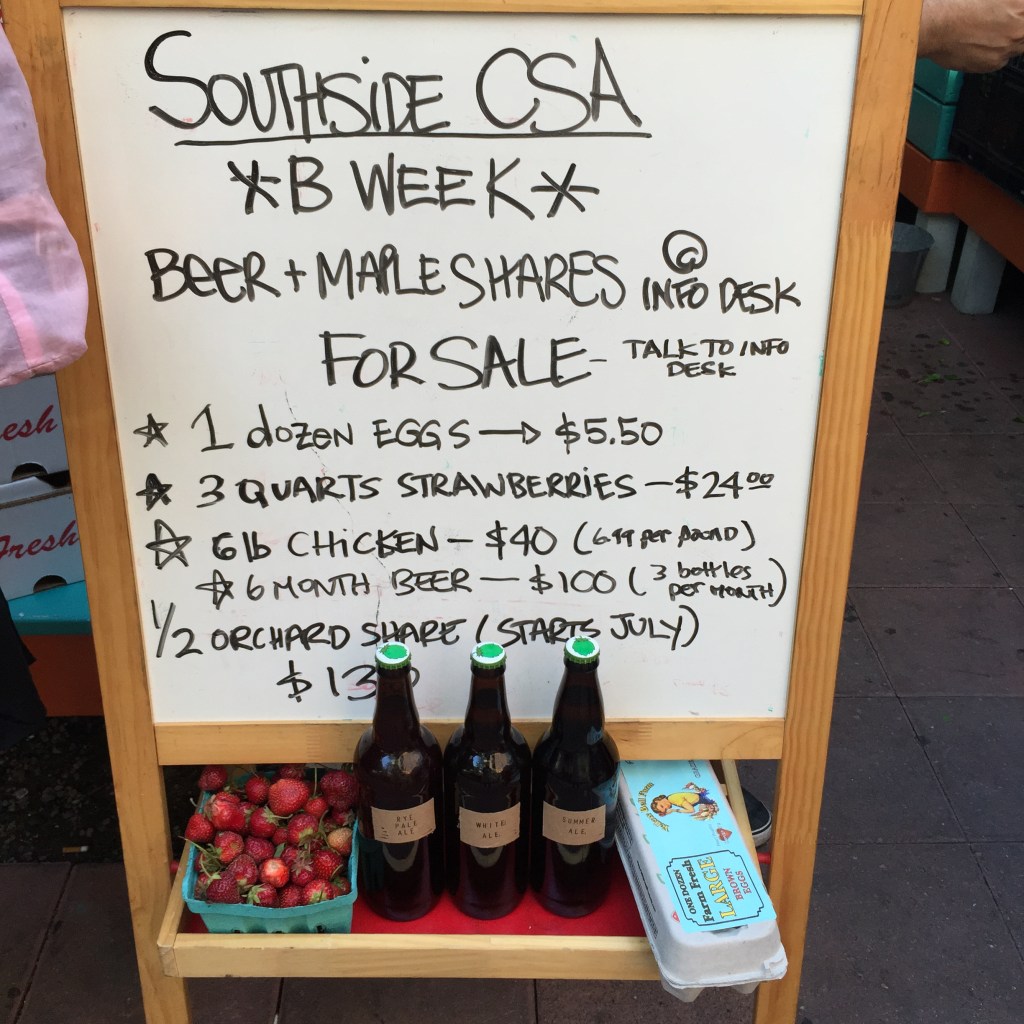 SOUTHSiDE CSA
*B WEEK*
BEER + MAPLE SHARES @ INFO DESK
FOR SALE - TALK TO INFO DESK
1 dozEN EGGS → $5.50
3 QUARTS STRAWBERRIES - $24.00
6 lb CHiCKEN - $40 (6.99 per pound)
6 MONTH BEER - $100 (3 bottles per MONTH)
1/2 ORCHARD SHARE (STARTS JULY)
esh
Fresh
RYE
PALE
ALE
WHITE
ALE
SUMMER
ALE
ONE DOZEN
Farm Fresh
LARGE
BROWN
EGGS